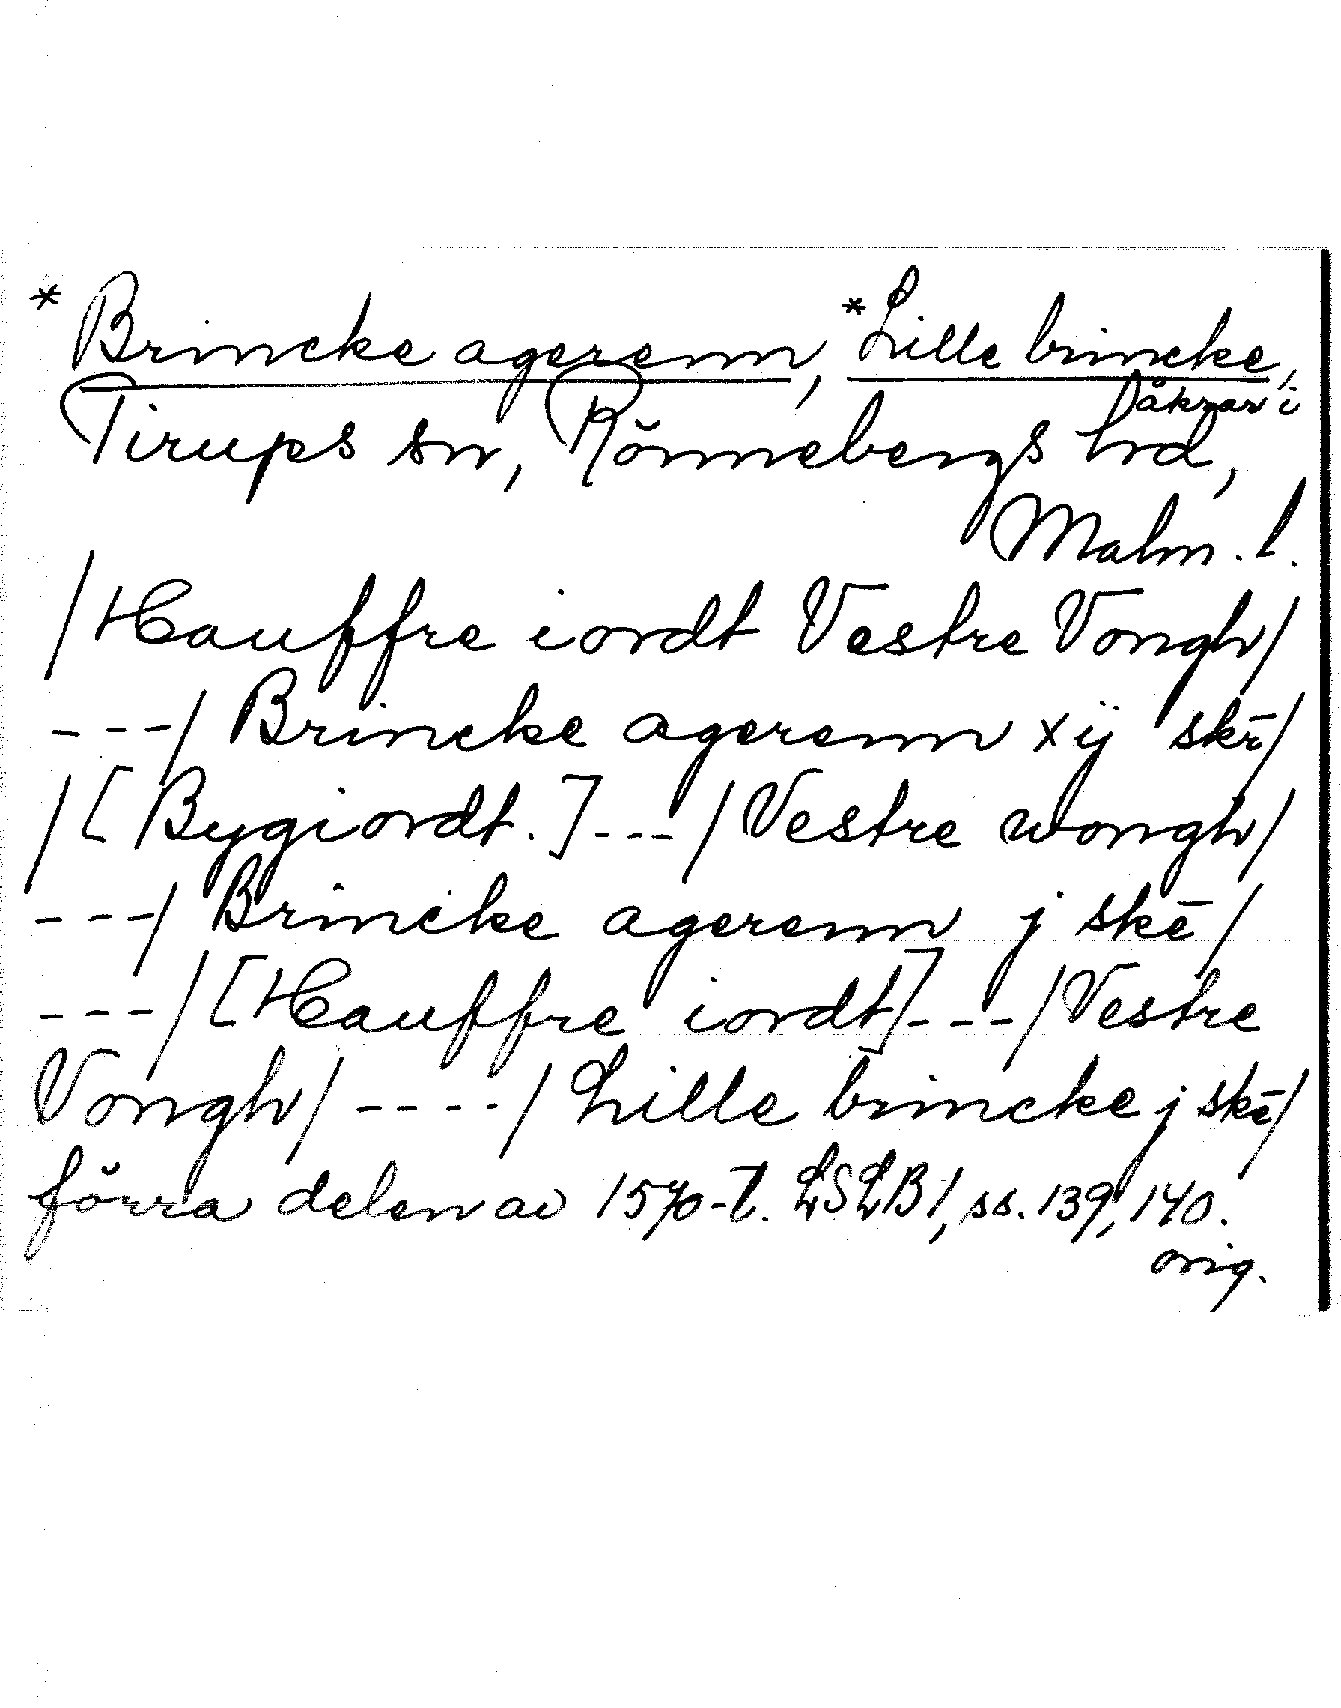 * Brincke agerenn, * Lille brincke,
åkrar i
Tirups sn, Rönnebergs hrd,
Malm. l.
/Hauffre iordt Vestre Vongh/
---/ Brincke agerenn xij skr̄/
/[Bygiordt.]---/Vestre wongh/
---/ Brincke agerenn j skē/
---/[Hauffre iordt]---/Vestre
Vongh/----/Lille brincke j skē/
förra delen av 1570-t. LSLB1, ss. 139, 140.
orig.